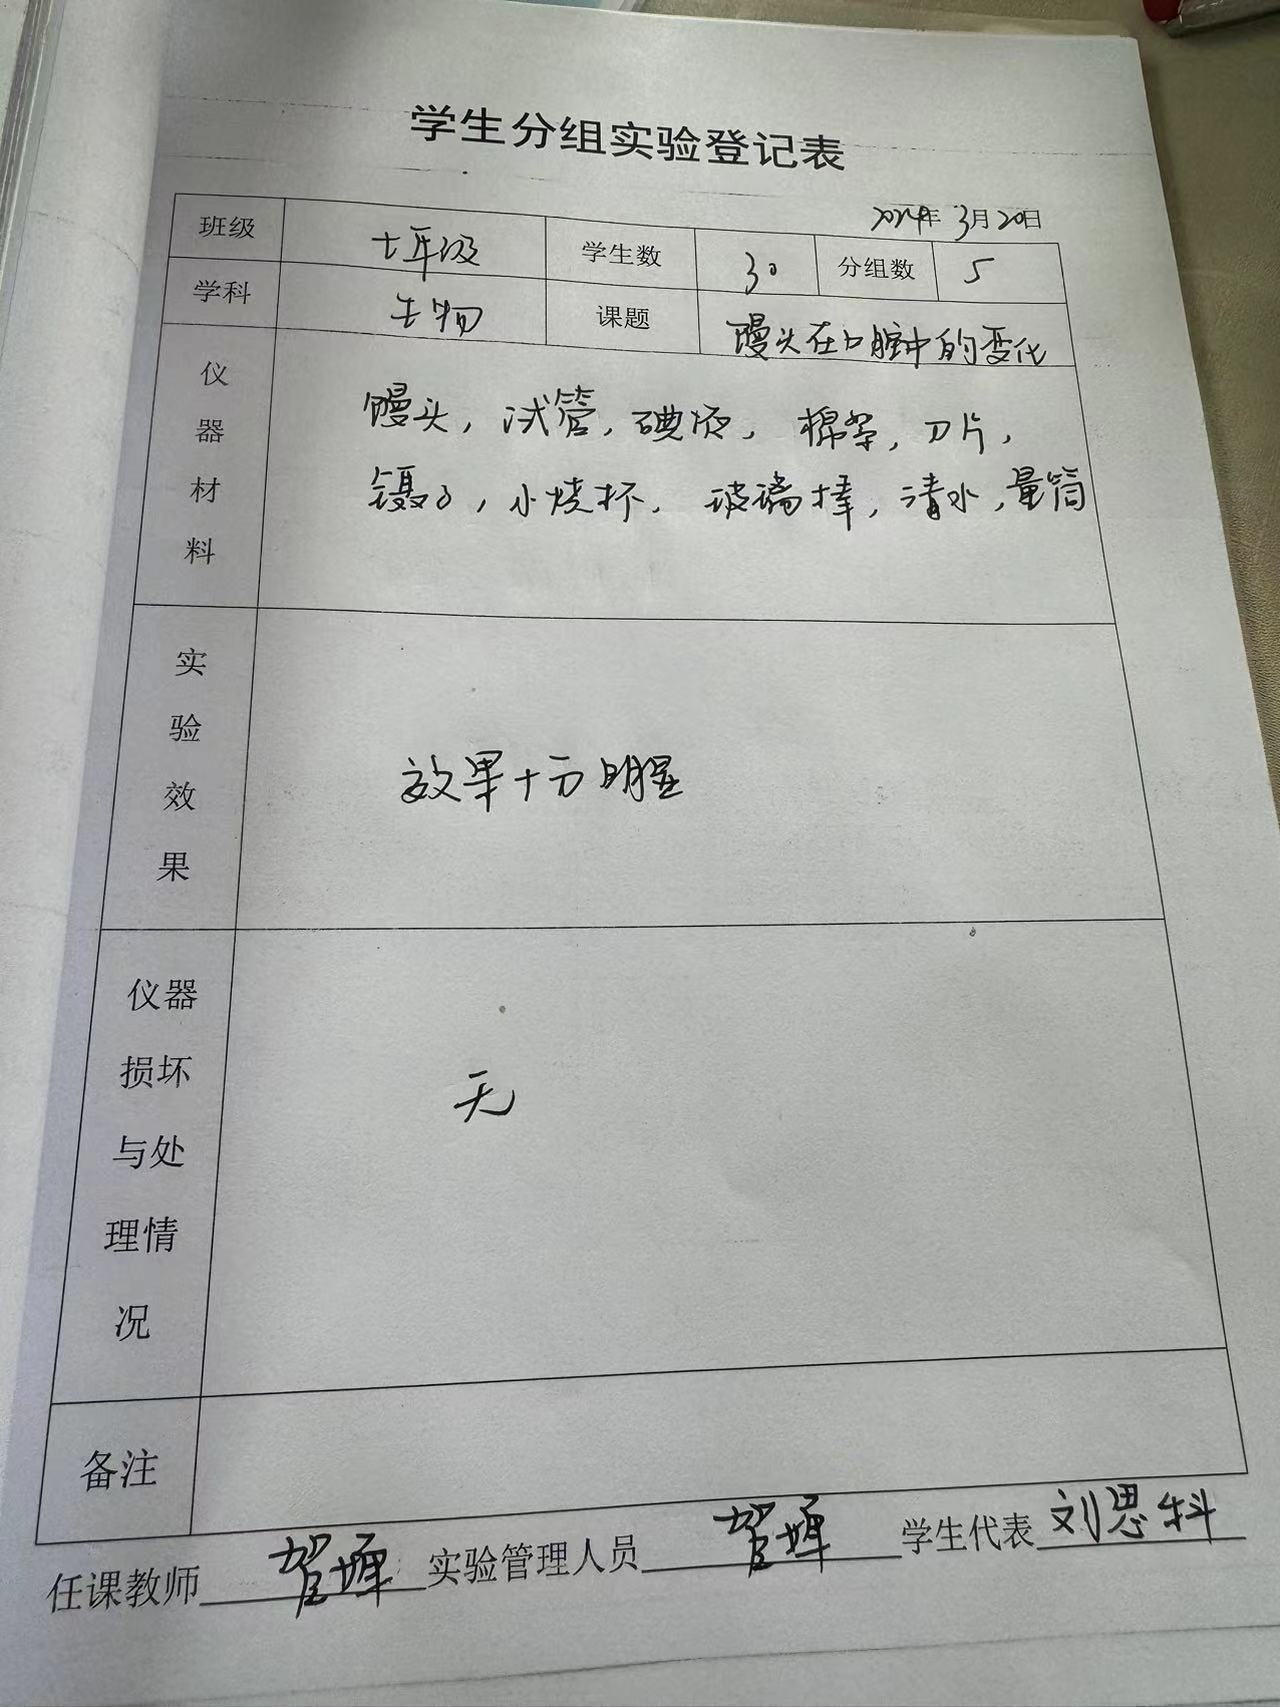 学生分组实验登记表
2024年 3月20日
班级 七年级 学生数 30 分组数 5
学科 生物 课题 馒头在口腔中的变化
仪器材料 馒头，试管，碘液，棉絮，刀片，
镊子，小烧杯，玻璃棒，清水，量筒
实验效果 效果十分明显
仪器损坏与处理情况 无
备注
任课教师 实验管理人员 学生代表 刘思科